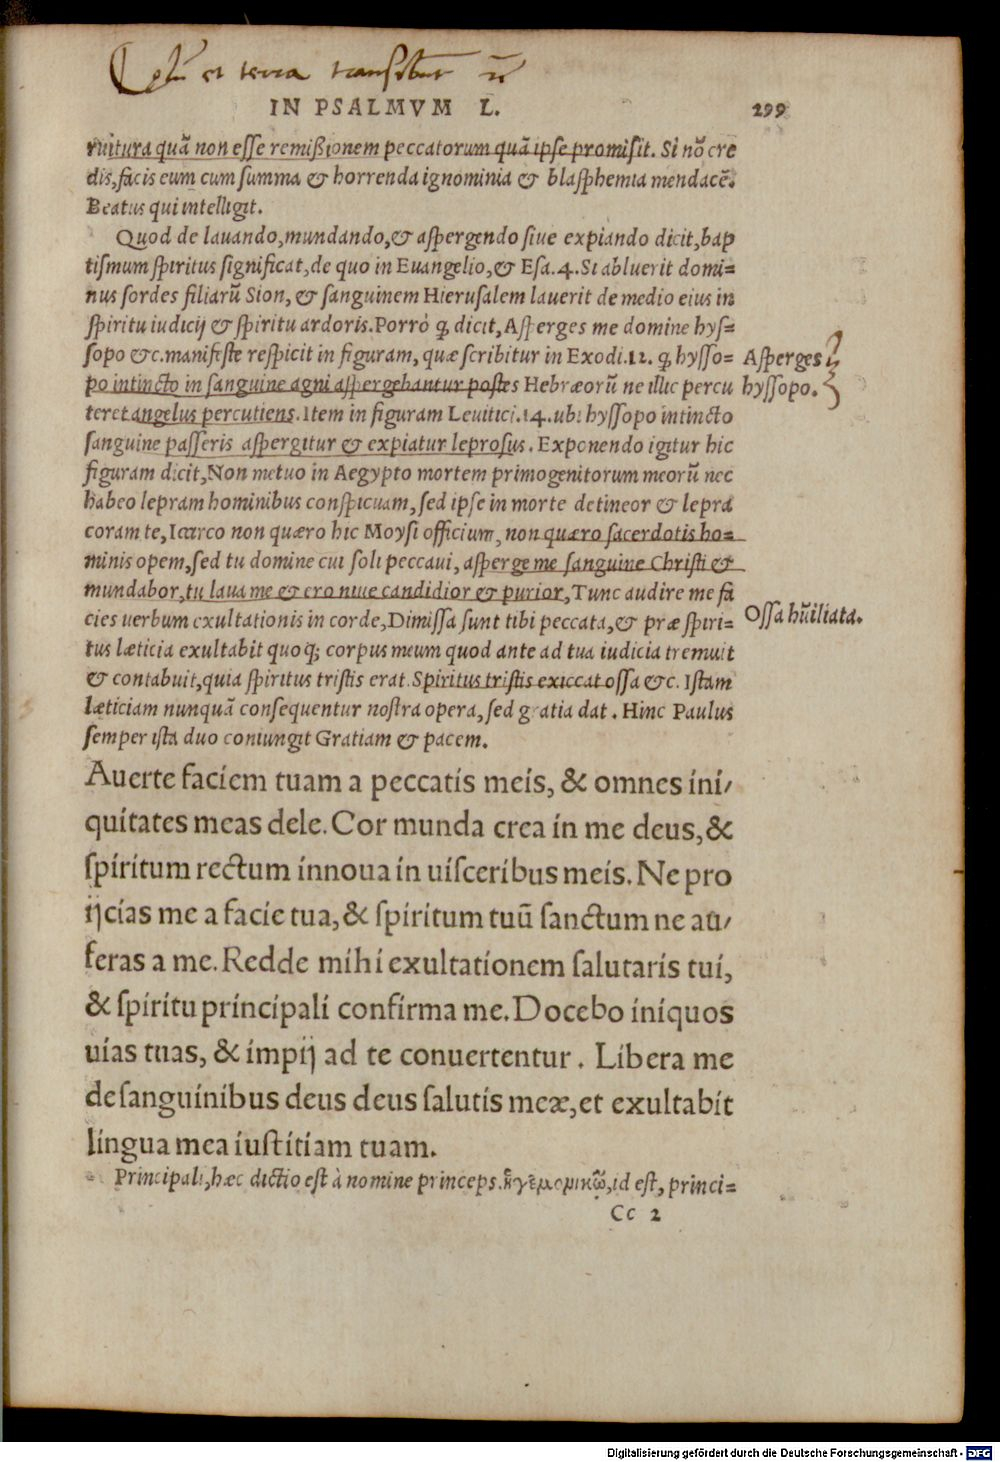 et terra transibunt
IN PSALMVM L. 299
ruitura quā non esse remißionem peccatorum quā ipse promisit. Si nō cre
dis, facis eum cum summa & horrenda ignominia & blasphemia mendacē.
Beatus qui intelligit.
Quod de lauando, mundando, & aspergendo siue expiando dicit, bap
tismum spiritus significat, de quo in Euangelio, & Esa. 4. Si abluerit domi=
nus sordes filiarū Sion, & sanguinem Hierusalem lauerit de medio eius in
spiritu iudicij & spiritu ardoris. Porrò q̈ dicit, Asperges me domine hys=
sopo &c. manifeste respicit in figuram, quæ scribitur in Exodi. 12. q̈ hysso=
po intincto in sanguine agni aspergebantur postes Hebræorū ne illic percu
teret angelus percutiens. Item in figuram Leuitici. 14. ubi hyssopo intincto
sanguine passeris aspergitur & expiatur leprosus. Exponendo igitur hic
figuram dicit, Non metuo in Aegypto mortem primogenitorum meorū nec
habeo lepram hominibus conspicuam, sed ipse in morte detineor & lepra
coram te, Idcirco non quæro hic Moysi officium, non quæro sacerdotis ho=
minis opem, sed tu domine cui soli peccaui, asperge me sanguine Christi &
mundabor, tu laua me & ero niue candidior & purior, Tunc audire me fa
cies uerbum exultationis in corde, Dimissa sunt tibi peccata, & præ spiri=
tus læticia exultabit quoq; corpus meum quod ante ad tua iudicia tremuit
& contabuit, quia spiritus tristis erat. Spiritus tristis exiccat ossa &c. Istam
læticiam nunquā consequentur nostra opera, sed gratia dat. Hinc Paulus
semper ista duo coniungit Gratiam & pacem.
Asperges
hyssopo.
Ossa hūiliata.
Auerte faciem tuam a peccatis meis, & omnes ini/
quitates meas dele. Cor munda crea in me deus, &
spiritum rectum innoua in uisceribus meis. Ne pro
ijcias me a facie tua, & spiritum tuū sanctum ne au/
feras a me. Redde mihi exultationem salutaris tui,
& spiritu principali confirma me. Docebo iniquos
uias tuas, & impij ad te conuertentur. Libera me
de sanguinibus deus deus salutis meæ, et exultabit
lingua mea iustitiam tuam.
Principali, hæc dictio est à nomine princeps. ἡγεμονικῶ, id est, princi=
Cc 2
Digitalisierung gefördert durch die Deutsche Forschungsgemeinschaft - DFG